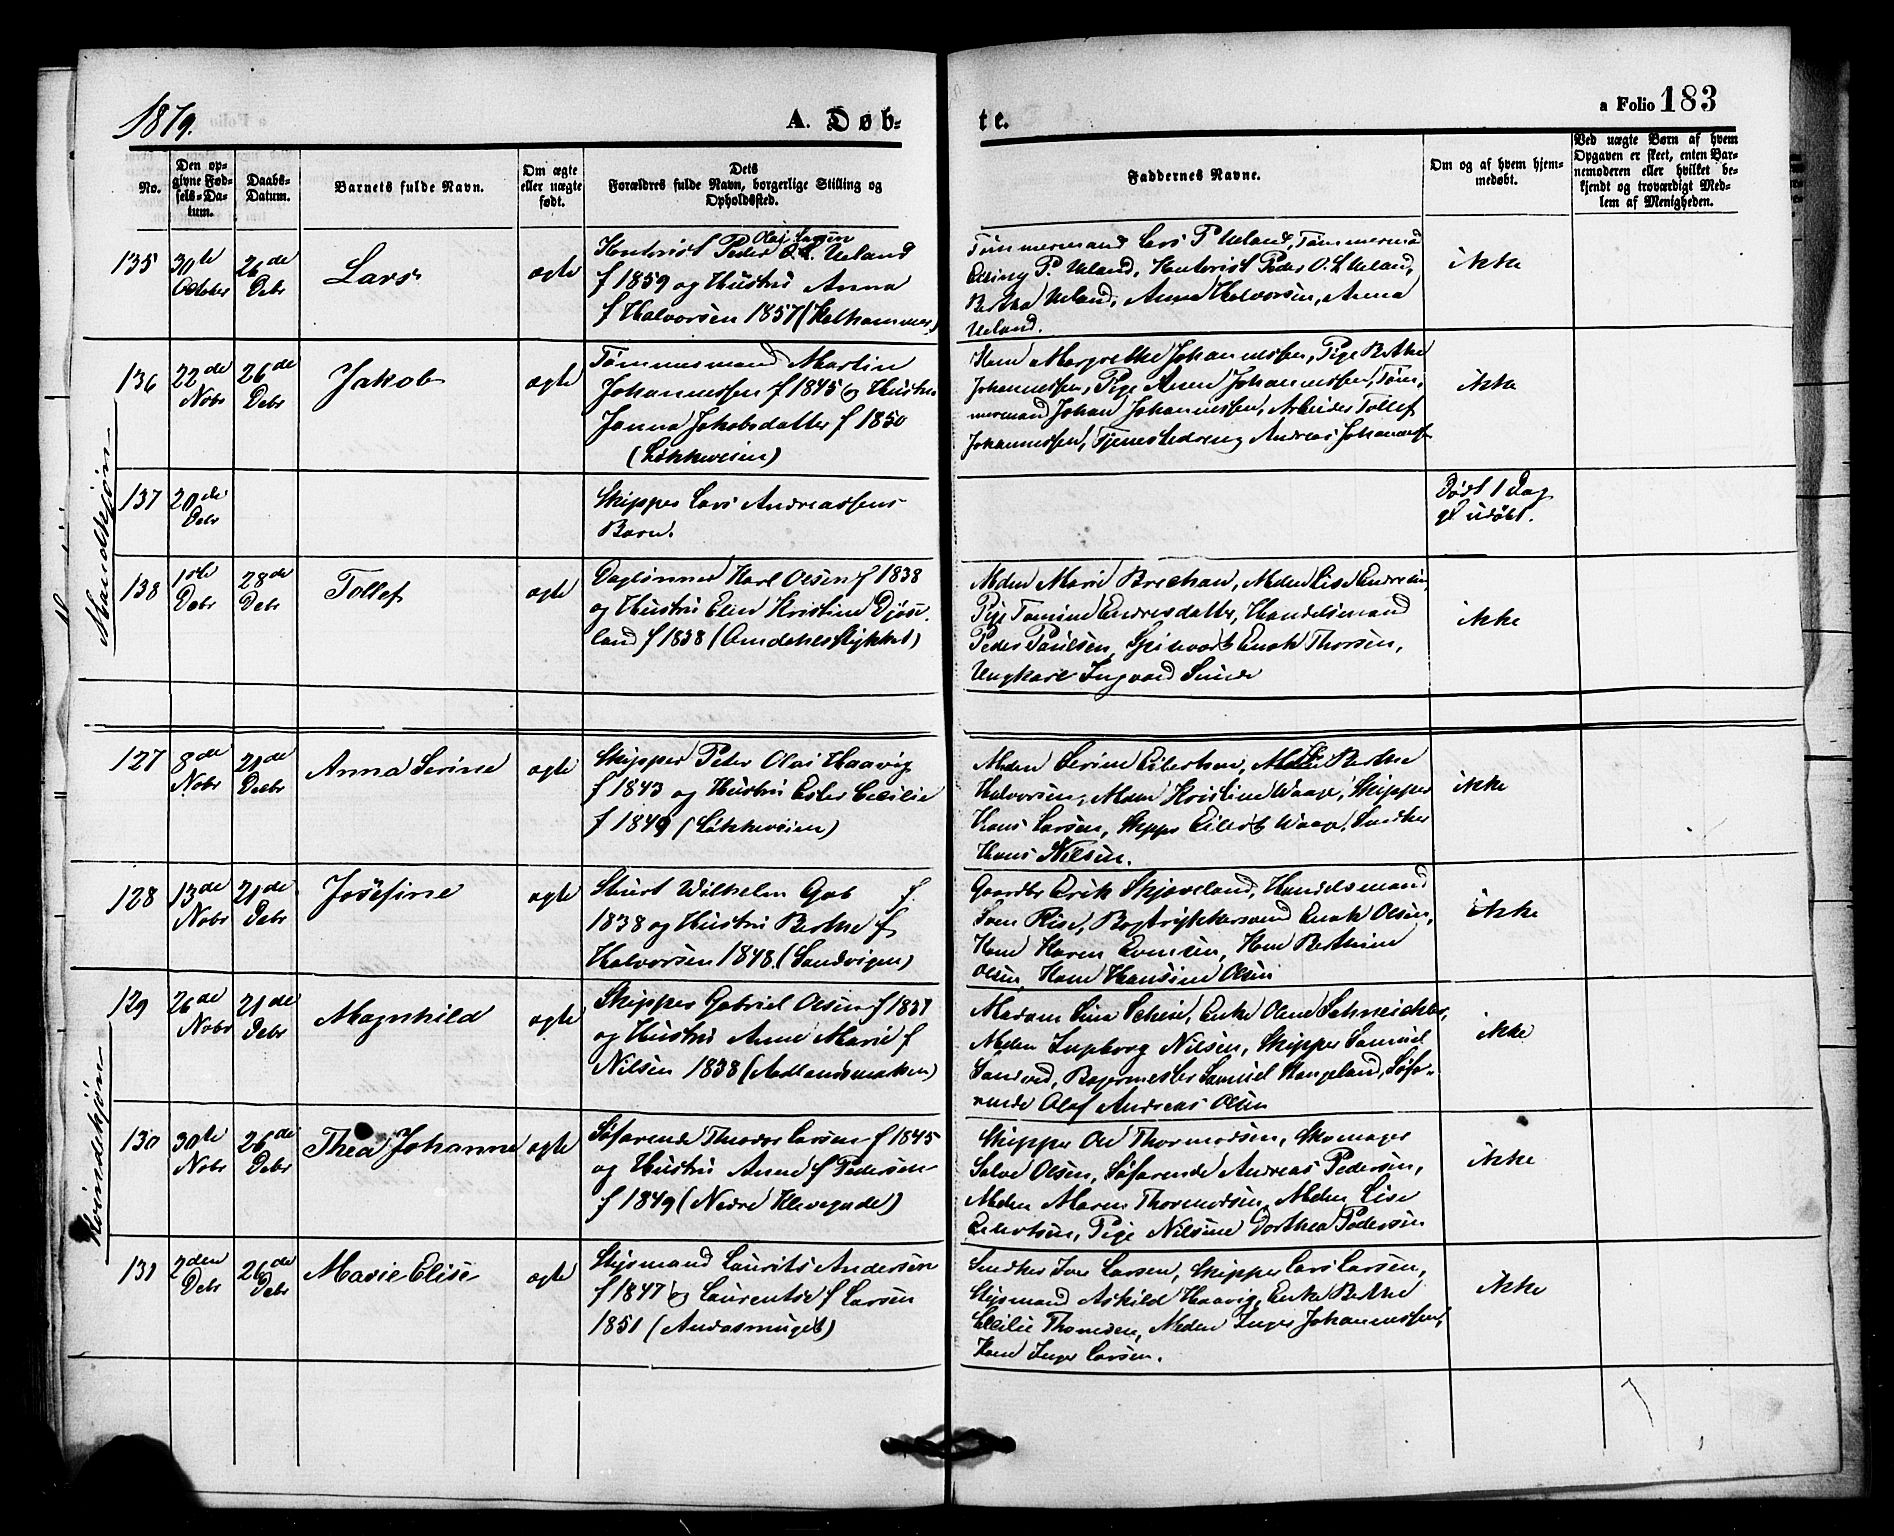 1879.
A. Døb-
te.
a Folio 183
No.
Den op-
givne Fød-
sels-Da-
tum.
Daabs-
Datum.
Barnets fulde Navn.
Om ægte
eller uægte
født.
Dets
Forældres fulde Navn, borgerlige Stilling og
Opholdssted.
Faddernes Navne.
Om og af hvem hjem-
medøbt.
Ved uægte Børn af hvem
Opgaven er skeet, enten Bar-
nemoderen eller hvilket be-
kjendt og troværdigt Med-
lem af Menigheden.
Mandkjøn
135
30te
October
26de
Debr
Lars
ægte
Olai Larsen
Kontorist Peder O.L. Ueland
f 1859 og Hustru Anna
f Halvorsen 1857 (Kalhammer)
Tømmermand Lars P Ueland, Tømmermd
P Ueland, Kontorist Peder O. L Ueland,
Bertha Ueland, Anna Halvorsen, Anna
Ueland.
ikke
136
22de
Nobr
26de
Debr
Jakob
ægte
Tømmermand Martin
Johannessen f 1845 og Hustru
Janna Jakobsdatter f 1850
(Løkkeveien)
Kone Margrethe Johannessen, Pige Berthe
Johannessen, Pige Anne Johannessen, Tøm-
mermand Johan Johannessen, Arbeider Tollef
Johannessen, Tjenestedreng Andreas Johanness
ikke
137
20de
Debr
Skipper Lars Andreassens
Barn.
Dødt 1 Dag
gl udøbt.
138
1ste
Debr
28de
Debr
Tollef
ægte
Daglønner Karl Olsen f 1838
og Hustru Elen Kristine Djøse-
land f 1838 (Omdahlsstykket)
Mdm Marie Brekhan, Mdm Lise Endresen,
Pige Tomine Endresdatter, Handelsmand
Peder Paulsen, Enok Thorsen,
Ungkarl Ingvard Sunde
ikke
Kvindekjøn
127
8de
Nobr
21de
Debr
Anna Serine
ægte
Skipper Peter Olai Haavig
f 1843 og Hustru Ester Cecilie
f 1849 (Løkkeveien)
Mdm Serine Eilertsen, Berthe
Halvorsen, Mdm Kristine Waage, Skipper
Hans Larsen, Skippr Eilert Waage, Snedker
Hans Nilsen.
ikke
128
13de
Nobr
21de
Debr
Josefine
ægte
Stuert Wilhelm Gab f.
1838 og Hustru Berthe f
Halvorsen 1848. (Sandvigen)
Gaardbr Erik Skjæveland, Handelsmand
Sven Rise, Bogtrykkersvend Enok Olsen,
Kone Karen Evensen, Kone Berthine
Olsen, Kone Hansine Olsen
ikke
129
26de
Nobr
21de
Debr
Magnhild
ægte
Skipper Gabriel Olsen f 1837
og Hustru Anne Marie f
Nilsen 1838 (Aadlandsmarken)
Madam Lina Scheie, Enke Olene Schneichler,
Mdm Ingeborg Nilsen, Skipper Samuel
Sandved, Bagermester Samuel Stangeland, Søfa-
rende Olaf Andreas Olsen
ikke
130
30te
Nobr
26de
Debr
Thea Johanne
ægte
Søfarende Theodor Larsen f 1845
og Hustru Anne f Pedersen
f 1849 (Nedre Klevegade)
Skipper Ole Thormodsen, Skomager
Salve Olsen, Søfarende Andreas Pedersen,
Mdm Maren Thormodsen, Mdm Lise
Eilertsen, Pige Nilsine Dorthea Pedersen
ikke
131
2den
Debr
26de
Debr
Marie Elise
ægte
Styrmand Laurits Andersen
f 1847 og Laurentse f Larsen
1851 (Andasmuget)
Snedker Iver Larsen, Skipper Lars Larsen,
Styrmand Askild Haavig, Enke Berthe
Cecilie Thomsen, Mdm Inger Johannessen,
Kone Inger Larsen.
ikke